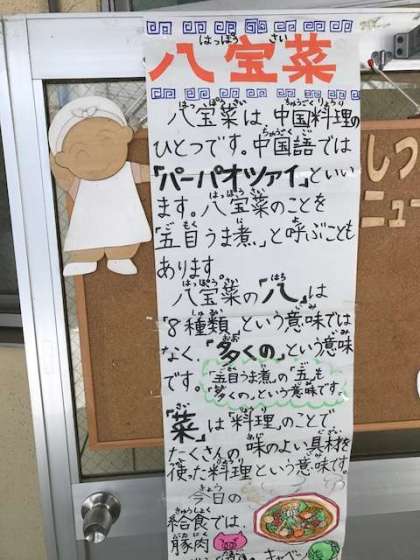 八宝菜
八宝菜は、中国料理の
ひとつです。中国語では
「パーパオツァイ」といい
ます。八宝菜のことを
「五目うま煮」と呼ぶことも
あります
八宝菜の「八」は
「8種類」という意味では
なく、「多くの」という意味
です。「五目うま煮」の「五」も
「多くの」という意味です。
「菜」は「料理」のことで、
たくさんの、味のよい具材を
使った料理という意味です。
今日の
給食では、
豚肉
しつ
ニュー